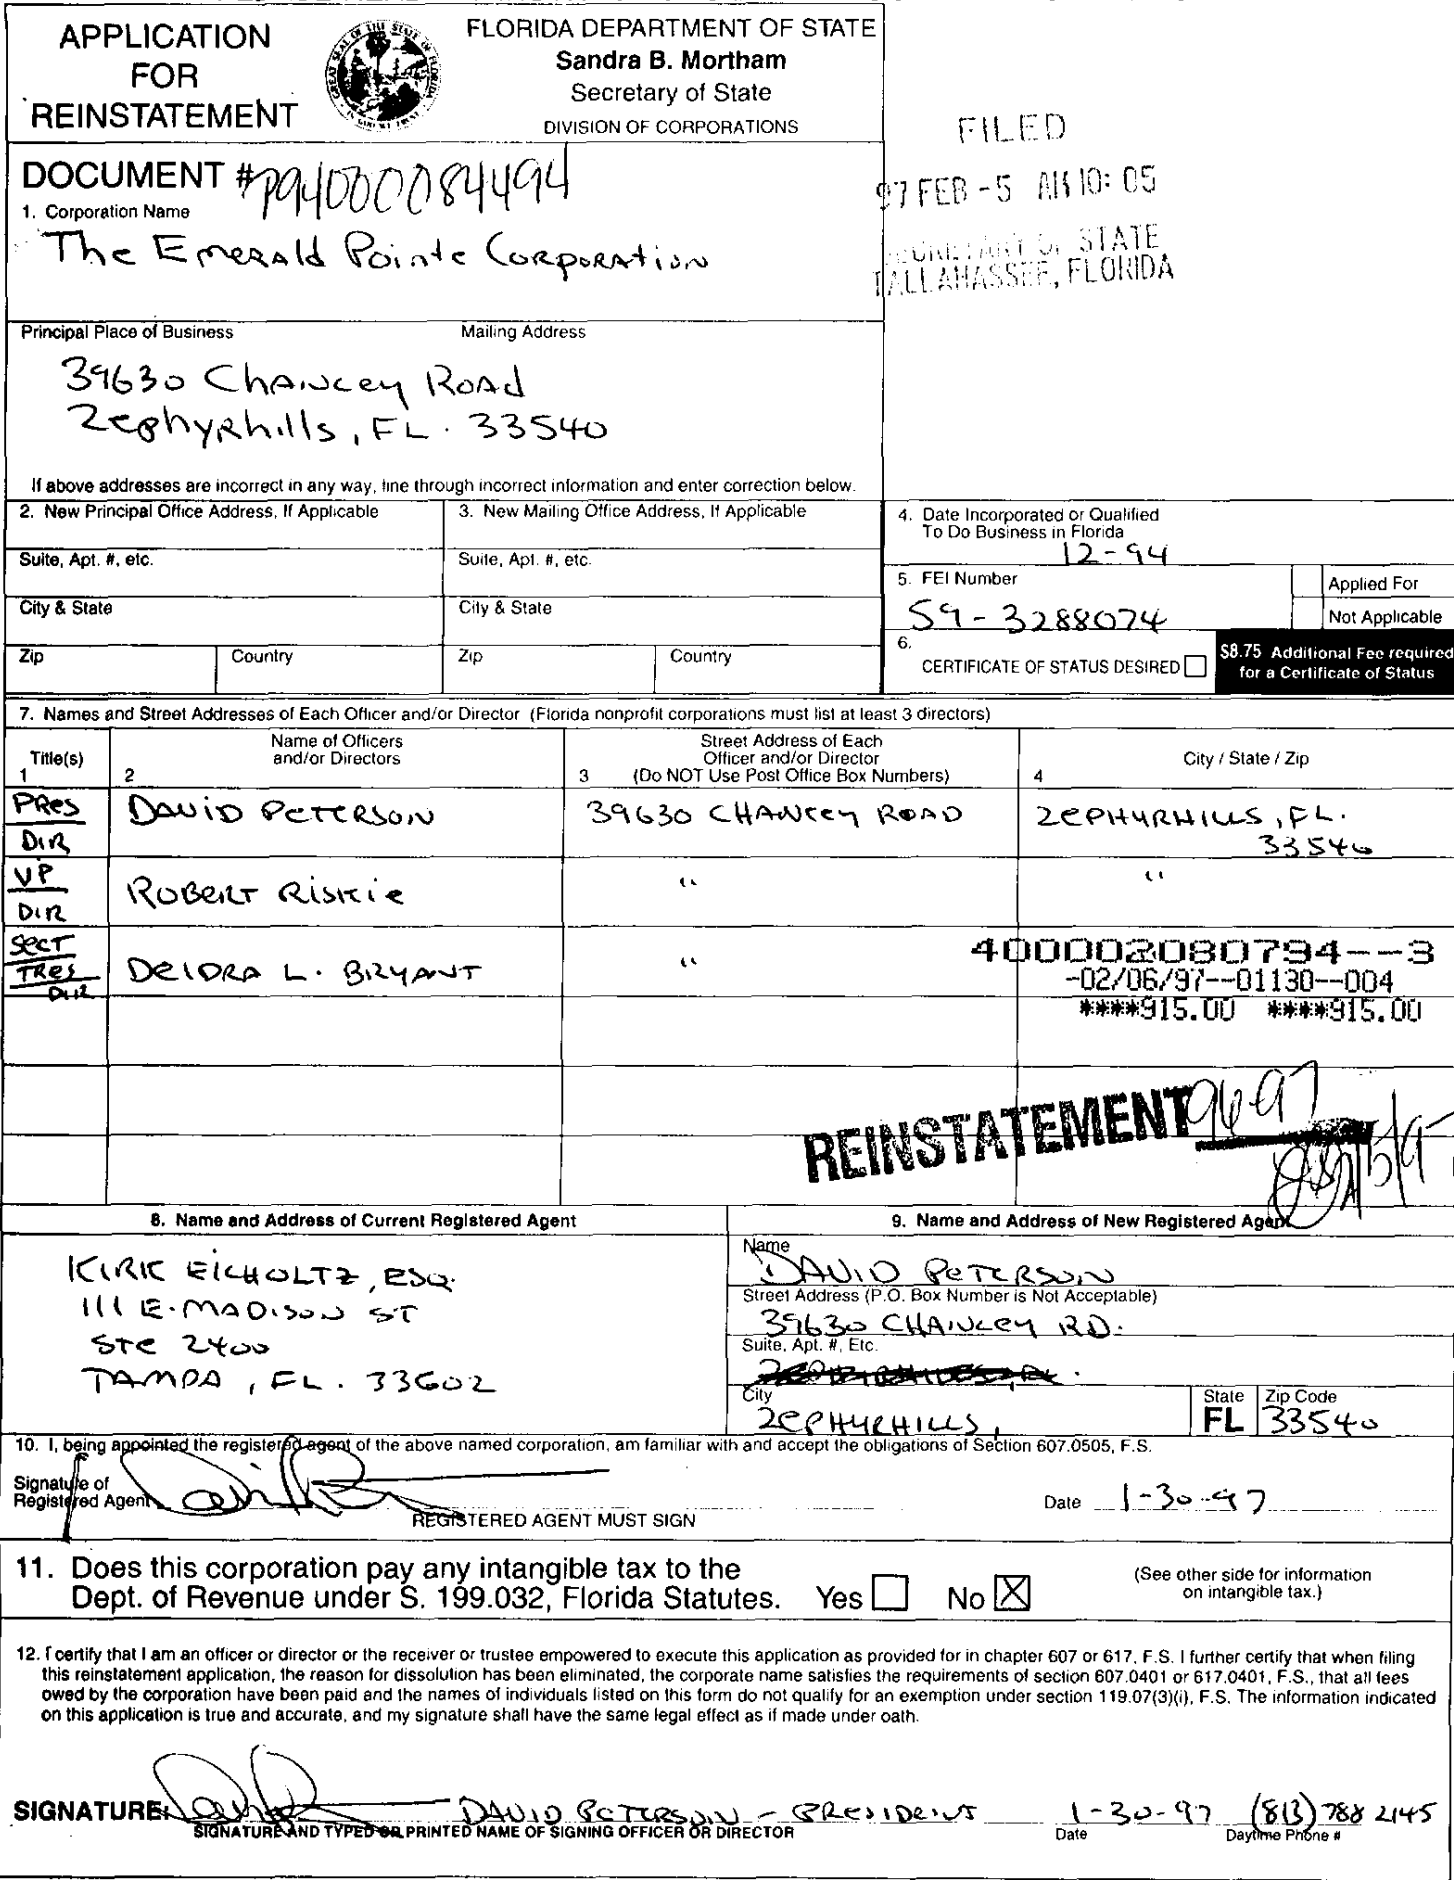 APPLICATION
FOR
REINSTATEMENT
FLORIDA DEPARTMENT OF STATE
Sandra B. Mortham
Secretary of State
DIVISION OF CORPORATIONS
FILED
97 FEB -5 AM 10: 05
SECRETARY OF STATE
TALLAHASSEE, FLORIDA
DOCUMENT # P94000084494
1. Corporation Name
The Emerald Pointe Corporation
Principal Place of Business Mailing Address
39630 Chancey Road
Zephyrhills, FL. 33540
If above addresses are incorrect in any way, line through incorrect information and enter correction below.
2. New Principal Office Address, If Applicable
3. New Mailing Office Address, If Applicable
4. Date Incorporated or Qualified
To Do Business in Florida
12-94
Suite, Apt. #, etc.
Suite, Apt. #, etc.
5. FEI Number
59-3288074
Applied For
Not Applicable
City & State
City & State
6.
CERTIFICATE OF STATUS DESIRED
$8.75 Additional Fee required
for a Certificate of Status
Zip Country
Zip Country
7. Names and Street Addresses of Each Officer and/or Director (Florida nonprofit corporations must list at least 3 directors)
Title(s)
1
Name of Officers
and/or Directors
2
Street Address of Each
Officer and/or Director
3 (Do NOT Use Post Office Box Numbers)
City / State / Zip
4
PRES
DIR
DAVID PETERSON
39630 CHANCEY ROAD
ZEPHYRHILLS, FL.
33540
VP
DIR
ROBERT RISKIE
"
"
SECT
TRES
DIR
DEIDRA L. BRYANT
"
400002080794--3
-02/06/97--01130--004
****915.00 ****915.00
REINSTATEMENT 96-97
8. Name and Address of Current Registered Agent
KIRK EICHOLTZ, ESQ.
111 E. MADISON ST
STE 2400
TAMPA, FL. 33602
9. Name and Address of New Registered Agent
Name
DAVID PETERSON
Street Address (P.O. Box Number is Not Acceptable)
39630 CHANCEY RD.
Suite, Apt. #, Etc.
City
ZEPHYRHILLS,
State
FL
Zip Code
33540
10. I, being appointed the registered agent of the above named corporation, am familiar with and accept the obligations of Section 607.0505, F.S.
Signature of
Registered Agent
REGISTERED AGENT MUST SIGN
Date 1-30-97
11. Does this corporation pay any intangible tax to the
Dept. of Revenue under S. 199.032, Florida Statutes. Yes No X
(See other side for information
on intangible tax.)
12. I certify that I am an officer or director or the receiver or trustee empowered to execute this application as provided for in chapter 607 or 617, F.S. I further certify that when filing
this reinstatement application, the reason for dissolution has been eliminated, the corporate name satisfies the requirements of section 607.0401 or 617.0401, F.S., that all fees
owed by the corporation have been paid and the names of individuals listed on this form do not qualify for an exemption under section 119.07(3)(i), F.S. The information indicated
on this application is true and accurate, and my signature shall have the same legal effect as if made under oath.
SIGNATURE: DAVID PETERSON - PRESIDENT 1-30-97 (813) 788 2145
SIGNATURE AND TYPED OR PRINTED NAME OF SIGNING OFFICER OR DIRECTOR Date Daytime Phone #